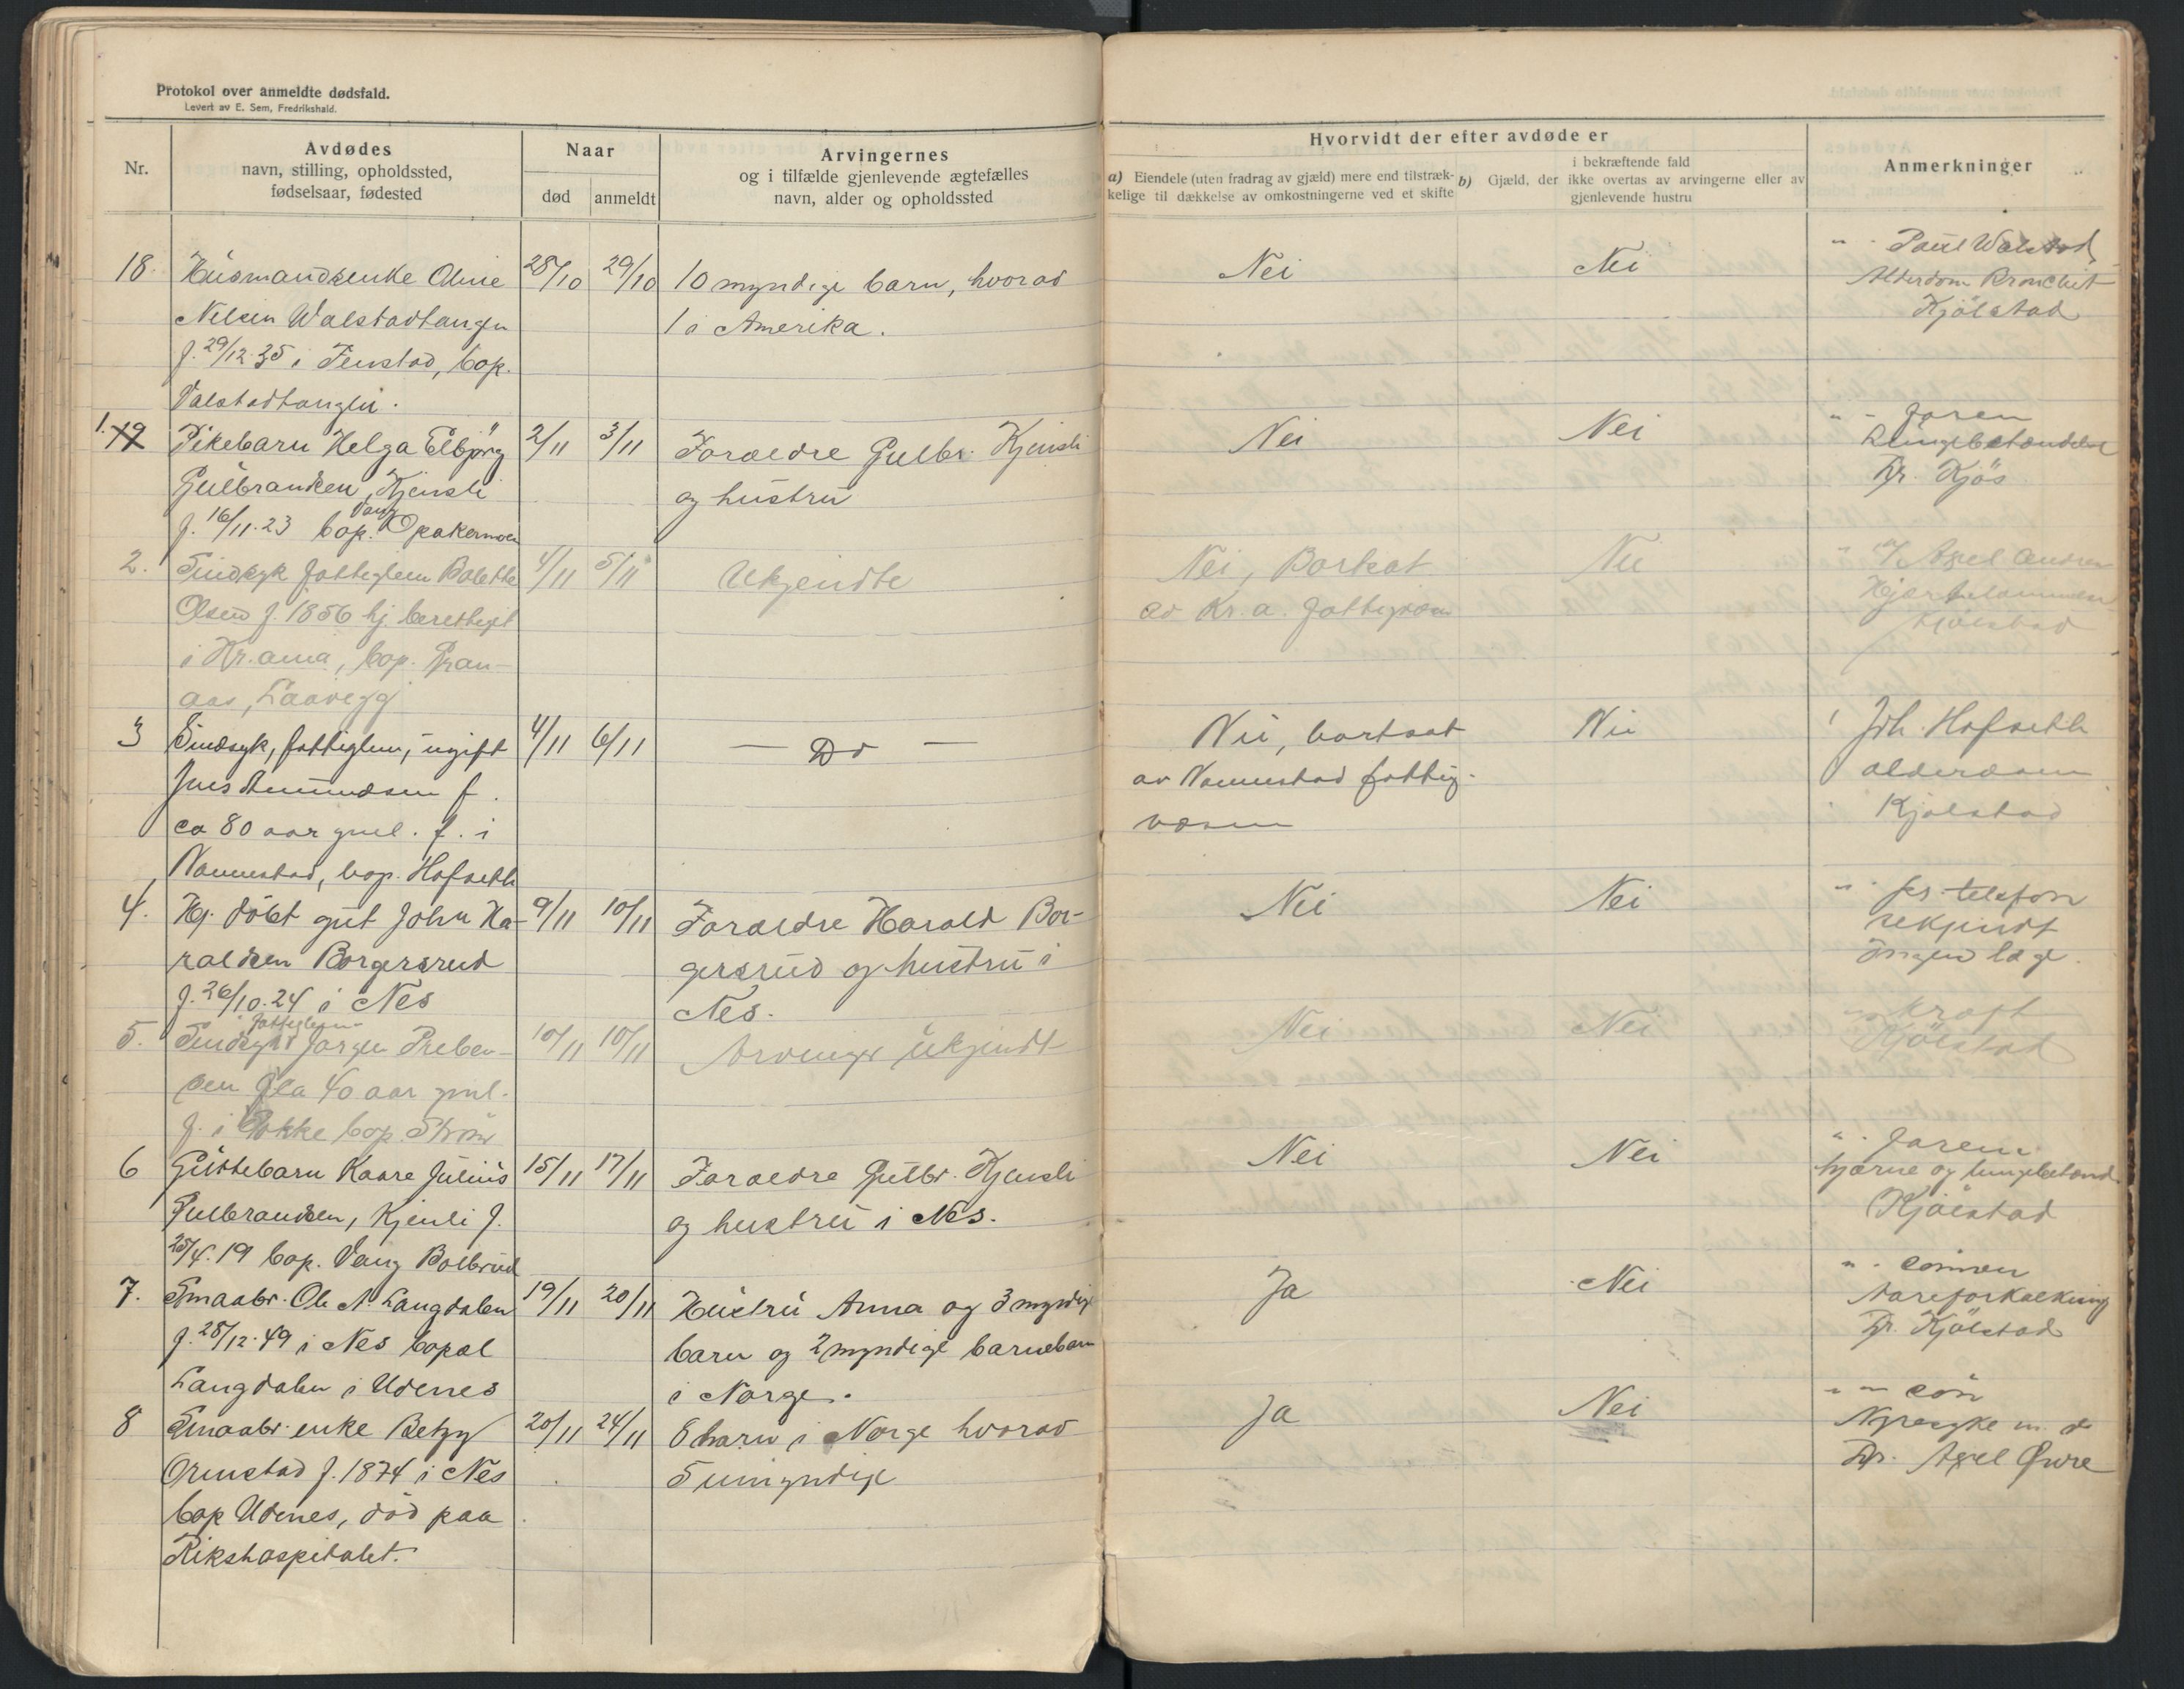 Protokol over anmeldte dødsfald.
Levert av E. Sem, Fredrikshald.
Nr.
Avdødes
navn, stilling, opholdssted,
fødselsaar, fødested
Naar
død
anmeldt
Arvingernes
og i tilfælde gjenlevende ægtefælles
navn, alder og opholdssted
Hvorvidt der efter avdøde er
a) Eiendele (uten fradrag av gjæld) mere end tilstræk-
kelige til dækkelse av omkostningerne ved et skifte
i bekræftende fald
b) Gjæld, der ikke overtas av arvingerne eller av
gjenlevende hustru
Anmerkninger
18 Husmandsenke Oline 28/10 29/10 10 myndige barn, hvorav Nei Nei " - Paul Walstad
Nilsen Walstadtangen 1 i Amerika. Alderdom Bronchit
f. 29/12 35 i Fenstad, bop. Kjölstad
Valstadtangen.
1. 19 Pikebarn Helga Elbjørg 2/11 3/11 Forældre Gulbr. Kjensli Nei Nei " - faren
Gulbrandsen, Kjensli og hustru Lungebetændelse
f. 16/11.23 bop. Vang Opakermoen Dr. Kjös
2. Sindsyk fattiglem Bolette 4/11 5/11 Ukjendte Nei, Bortsat Nei " Axel Andresen
Olsen f. 1856 hj. berettiget av Kr.a. fattigvæsen Hjertelammelse
i Kr.ania, bop. Gran- Kjölstad
aas, Laavegg
3 Sindsyk, fattiglem, ugift 4/11 6/11 — Do — Nei, bortsat Nei Joh. Hofseth
Jens Amundsen f. av Nannestad fattig- alderdom
ca 80 aar gml. f. i væsen Kjølstad
Nannestad, bop. Hofseth
4. Hj. döbt gut John Ha- 9/11 10/11 Forældre Harald Bor- Nei Nei " - pr. telefon
raldsen Borgersrud gersrud og hustru i ukjendt
f. 26/10.24 i Nes Nes. Ingen læge.
5. Sindsyk fattiglem Jørgen Preben- 10/11 10/11 Arvinger ukjendt Nei Nei kraft
sen ca 40 aar gml. Kjölstad
f. i Bokke bop. Ström
6 Guttebarn Kaare Julius 15/11 17/11 Forældre Gulbr. Kjensli Nei Nei " - faren
Gulbrandsen, Kjensli f. og hustru i Nes. hjerne og lungebetænd.
25/4.19 bop. Vang Bolbrud Kjölstad
7. Smaabr. Ole N. Langdalen 19/11 20/11 Hustru Anna og 3 myndige Ja Nei " - sönnen
f. 28/12.49 i Nes bopæl barn og 2 myndige barnebarn Aareforkalkning
Langdalen i Udenes i Norge. Dr. Kjölstad
8 Smaabr. enke Betzy 20/11 24/11 8 barn i Norge hvorav Ja Nei " - sön
Ormstad f. 1874 i Nes 5 umyndige Nyresyke m. d
bop Udenes, död paa Dr. Axel Øwre
Rikshospitalet.